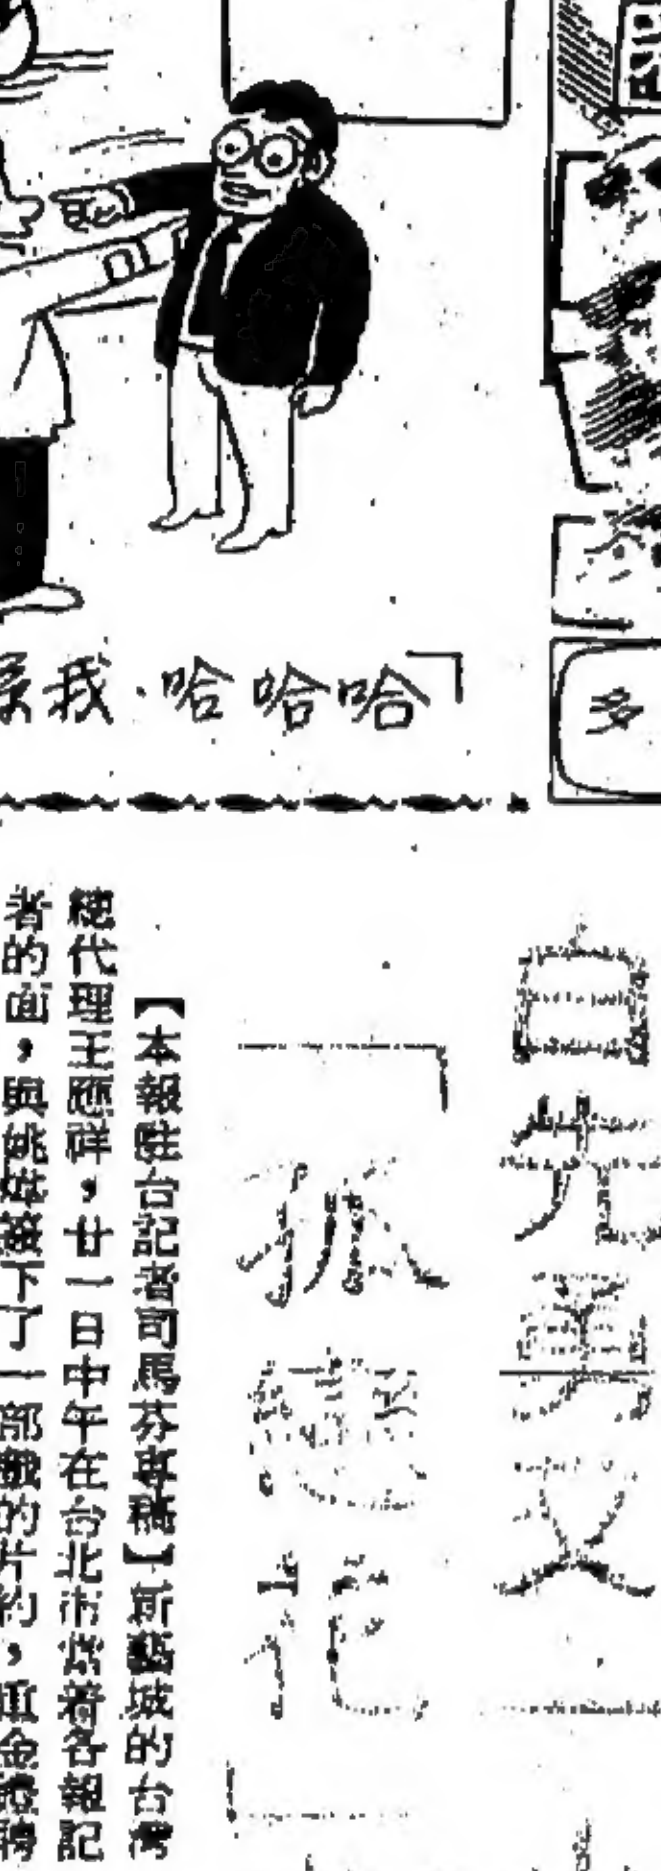 我·哈哈哈」
多
白先勇文
「孤戀花
【本報駐台記者司馬芬專稿】新藝城的台灣
總代理王應祥，廿一日中午在台北市當着各報記
者的面，與姚煒簽下了一部戲的片約，重金禮聘